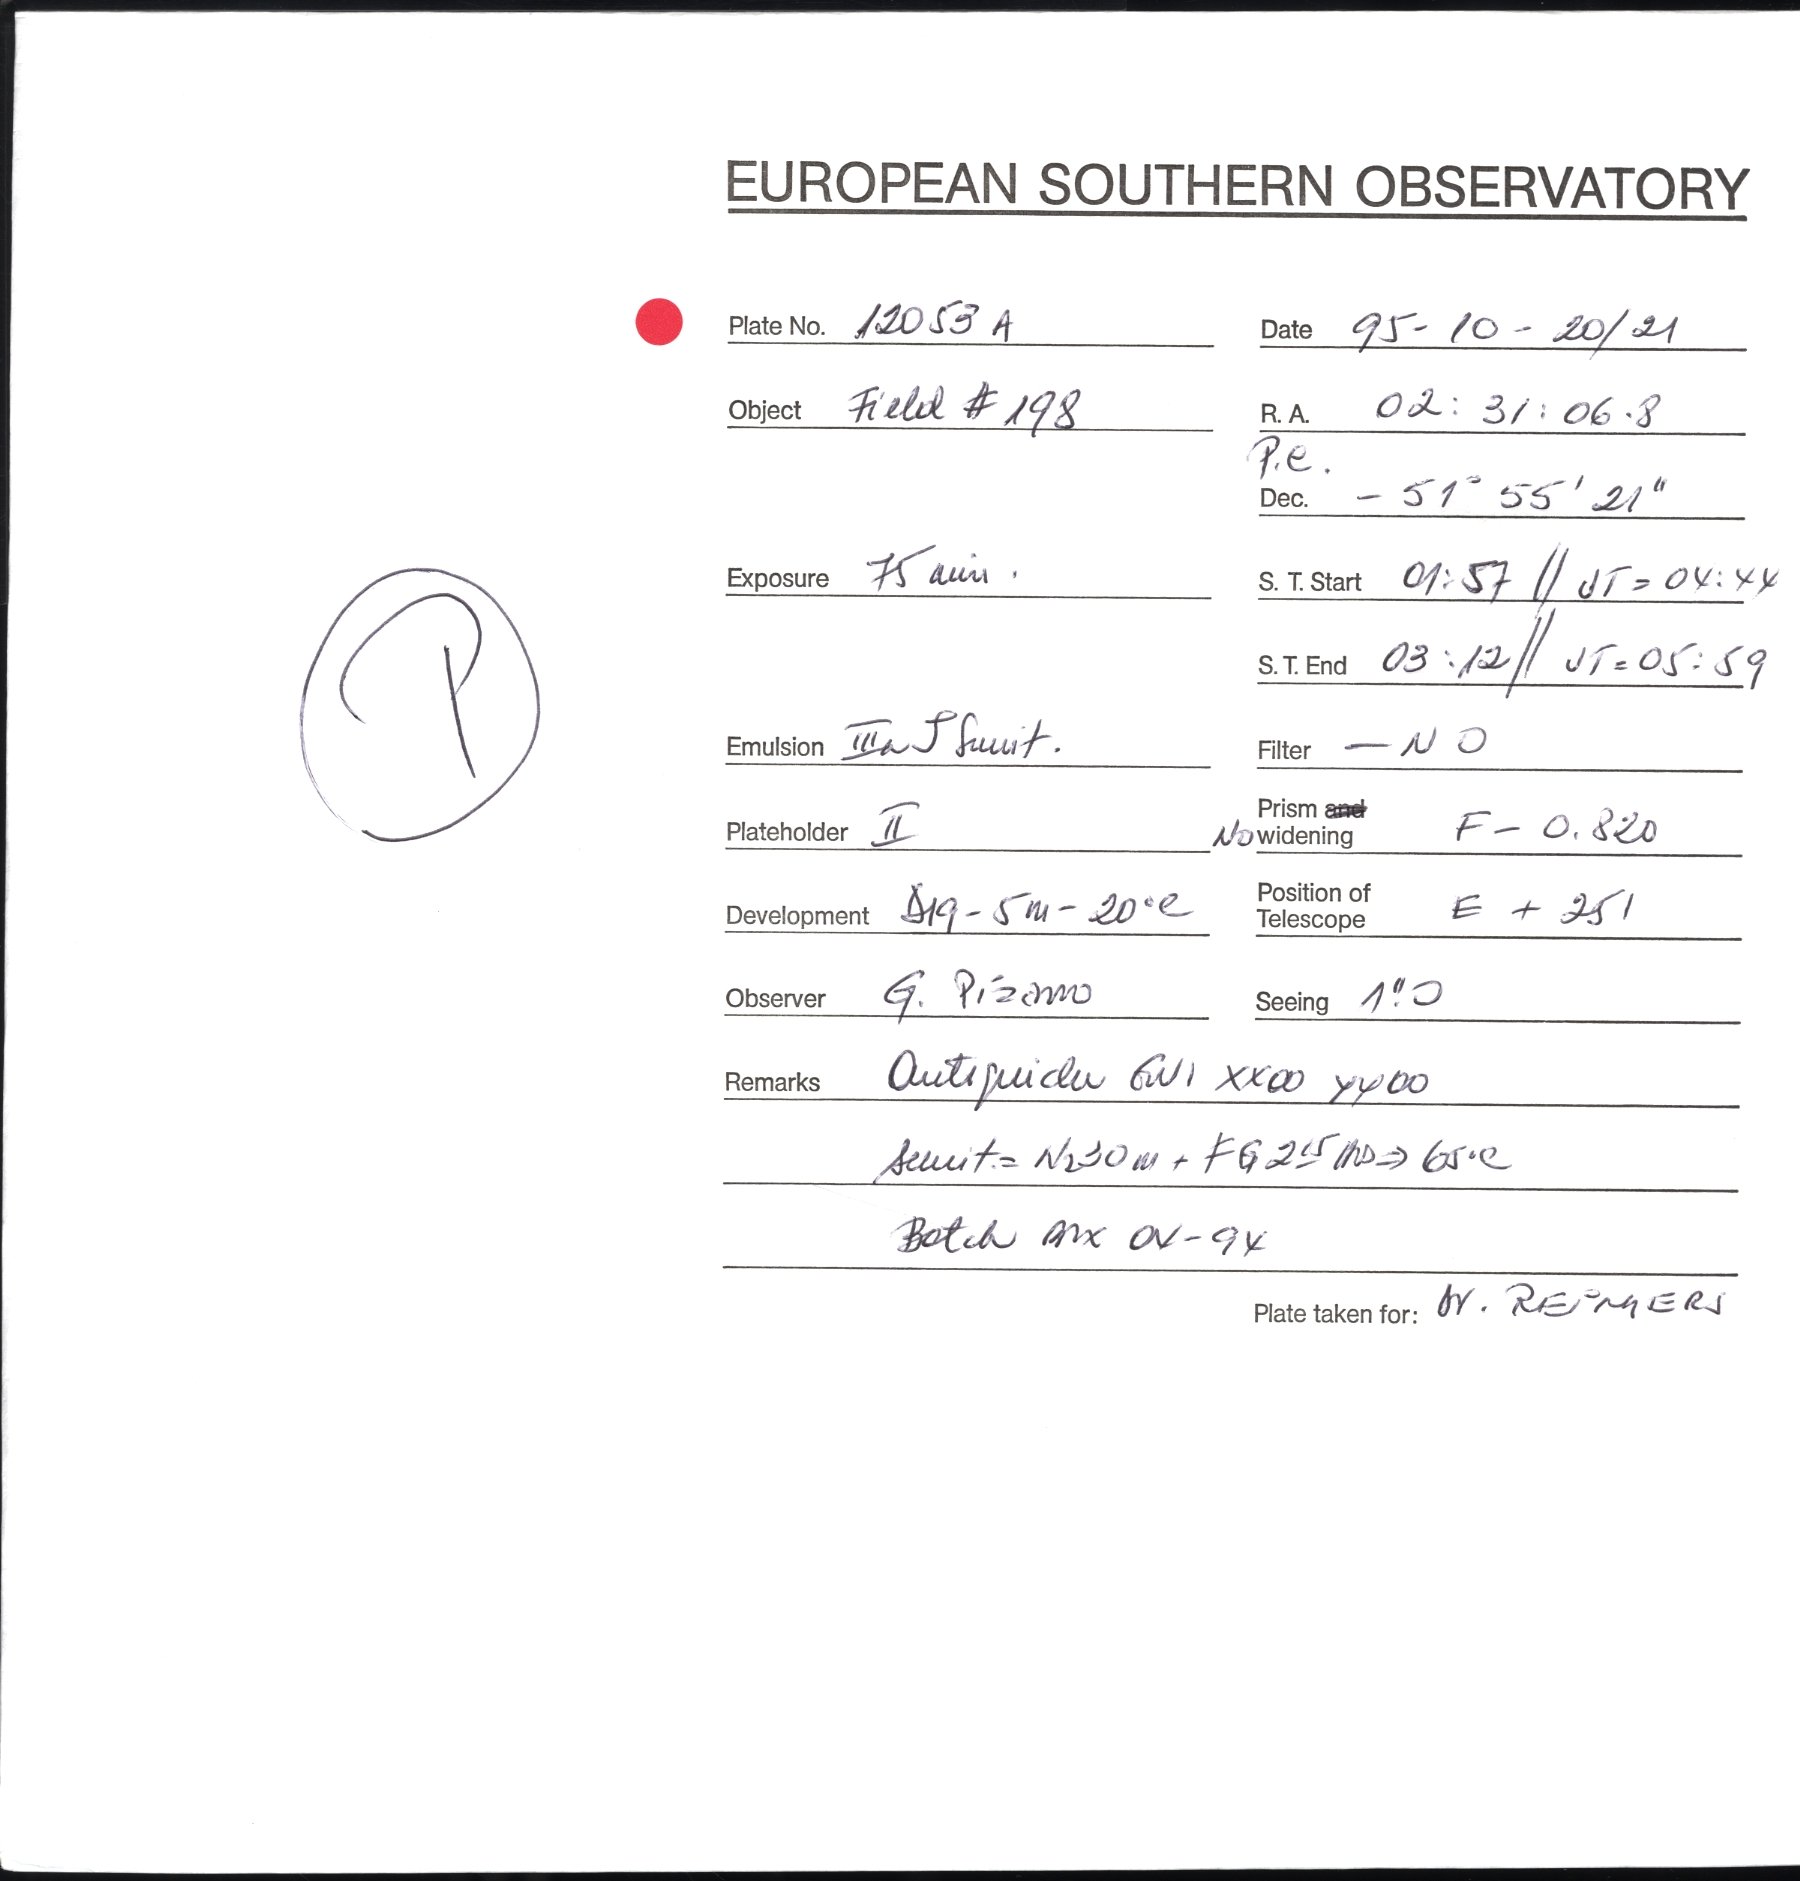 EUROPEAN SOUTHERN OBSERVATORY
Plate No. 12053 A
Date 95-10-20/21
Object Field # 198
R. A. 02:31:06.8
P.e.
Dec. -51° 55' 21"
Exposure 75 min.
S. T. Start 01:57 // UT=04:44
S. T. End 03:12 // UT=05:59
P
Emulsion IIIa J
Filter — NO
Plateholder II
Prism and
No widening F-0.820
Development D19-5m-20°C
Position of
Telescope E + 251
Observer G. Pizarro
Seeing 1".0
Remarks XX00 YY00
N230m + FG 65°C
Batch 04-94
Plate taken for: Dr. REIMERS